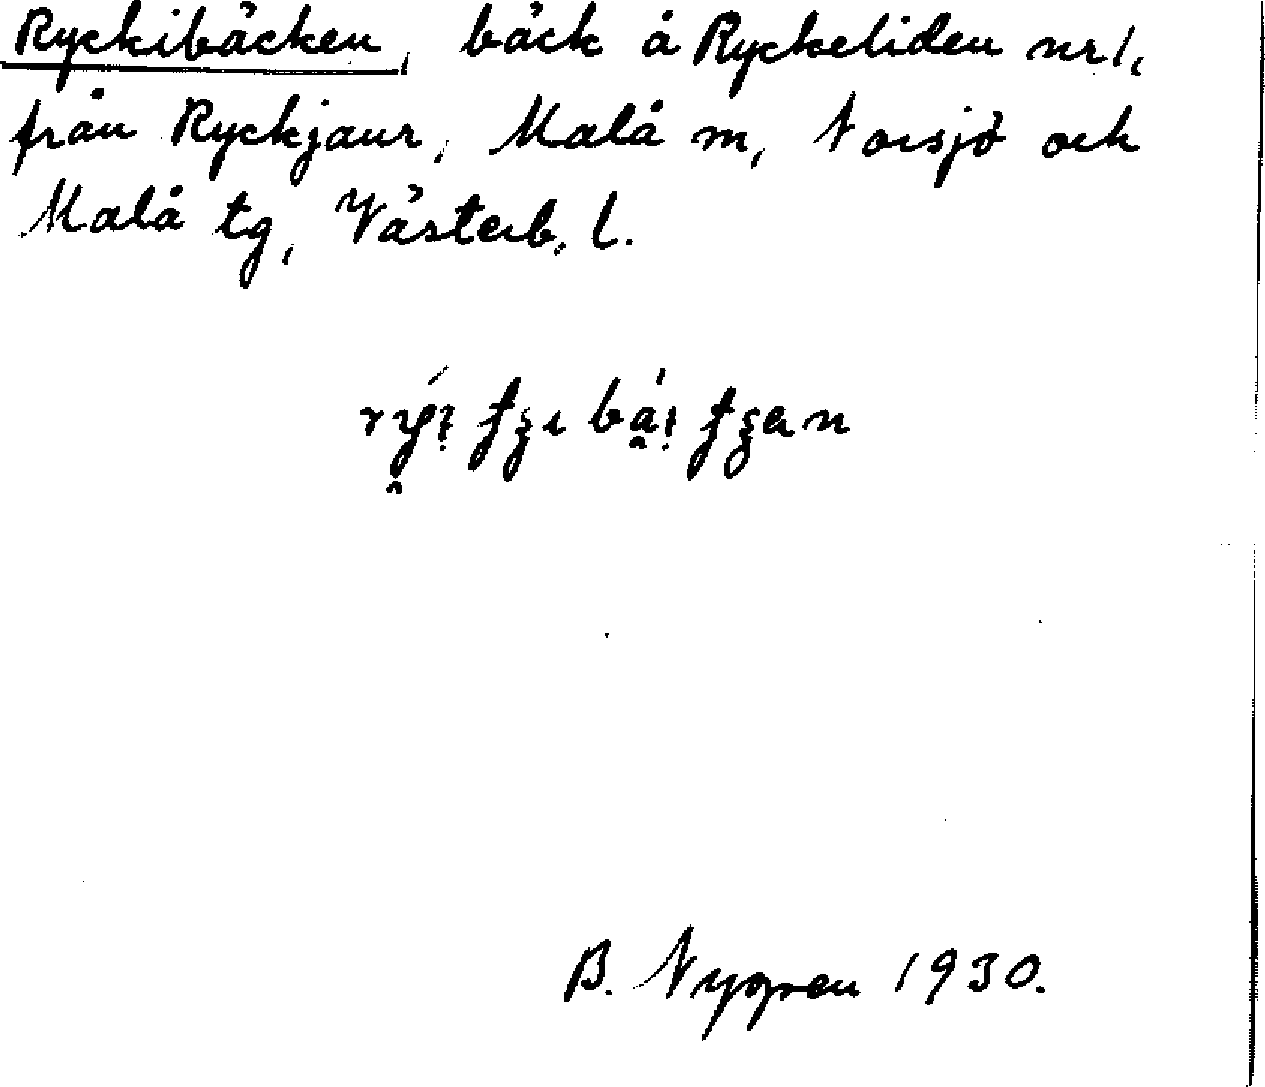 Ryckibäcken, bäck å Ryckeliden nr 1,
från Ryckjaur, Malå m, Norsjö och
Malå tg, Västerb. l.
B. Nygren 1930.